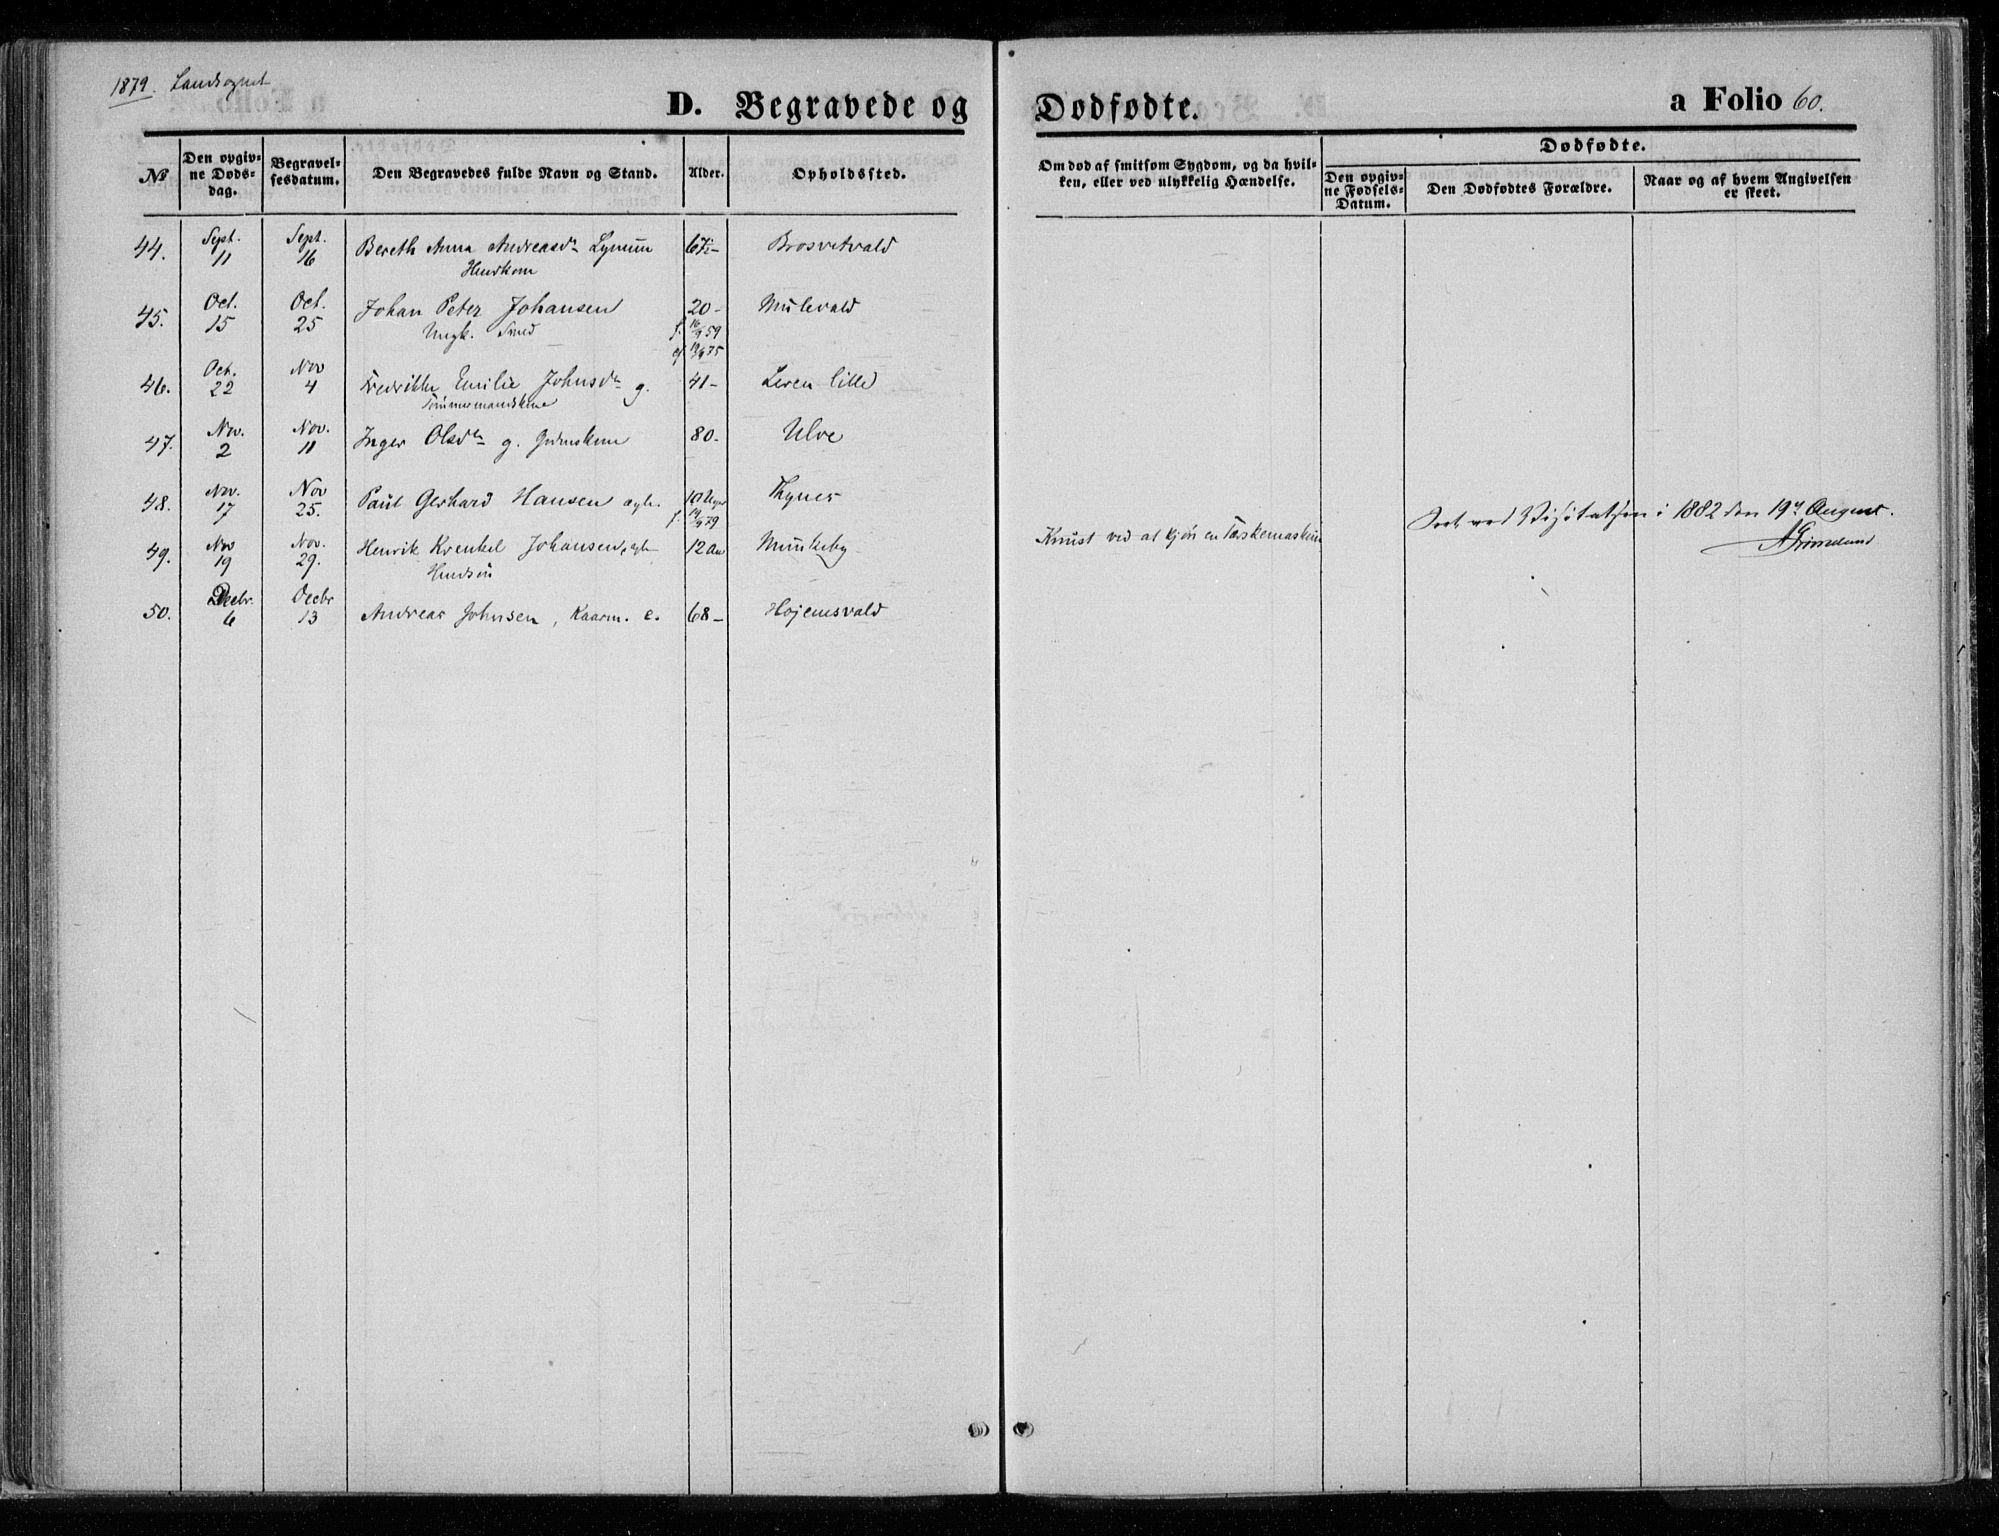 1879. Landsognet
D. Begravede og Dødfødte.
a Folio 60.
No
Den opgivne Dødsdag.
Begravelsesdatum.
Den Begravedes fulde Navn og Stand.
Alder.
Opholdssted.
Om død af smitsom Sygdom, og da hvilken, eller ved ulykkelig Hændelse.
Dødfødte.
Den opgivne Fødsels-Datum.
Den Dødfødtes Forældre.
Naar og af hvem Angivelsen er skeet.
44. Sept. 11 Sept. 16 Bereth Anna Andreasdn Lynum 67 Brosvetvald
45. Oct. 15 Oct. 25 Johan Peter Johansen 20- Mulevald
Ungk. Smed f. 16/9 59
46. Oct. 22 Nov 4 Fredrikke Emilie Johnsdn g. 41- Leren lille
Tømmermandskone
47. Nov. 2 Nov. 11 Inger Olsdn g. 80- Ulve
48. Nov. 17 Nov 25. Paul Gerhard Hansen ægte. 10 Uger Thynes
f. 14/9 79
49. Nov 19 Nov. 29. Henrik Krenkel Johansen, ægte 12 Aar Munkeby Knust ved at kjøre en Tærskemaskin
Huusm
50. Decbr. 6 Decbr 13 Andreas Johnsen, Kaarm. e. 68- Højemsvald
Seet ved Visitatsen i 1882 den 19de August.
A Grimelund